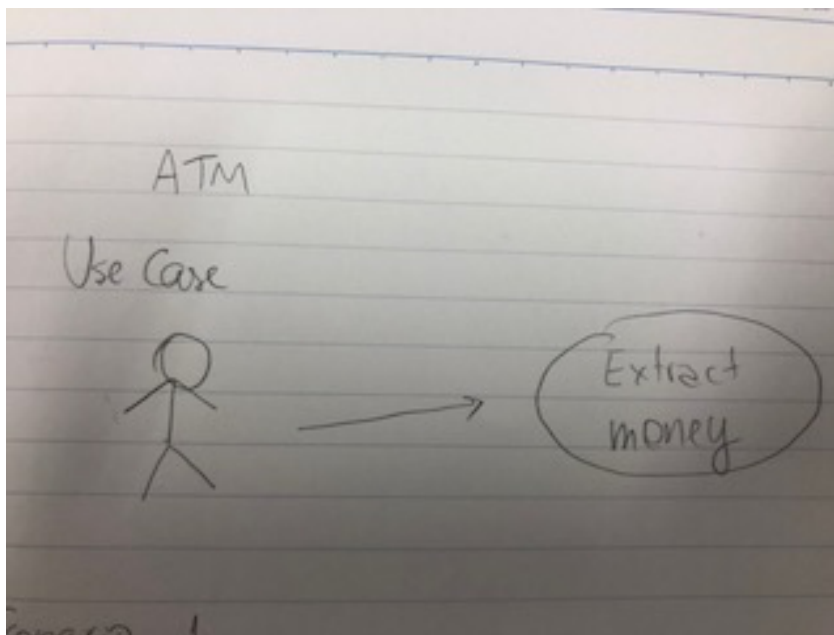 ATM
Use Case
Extract
money